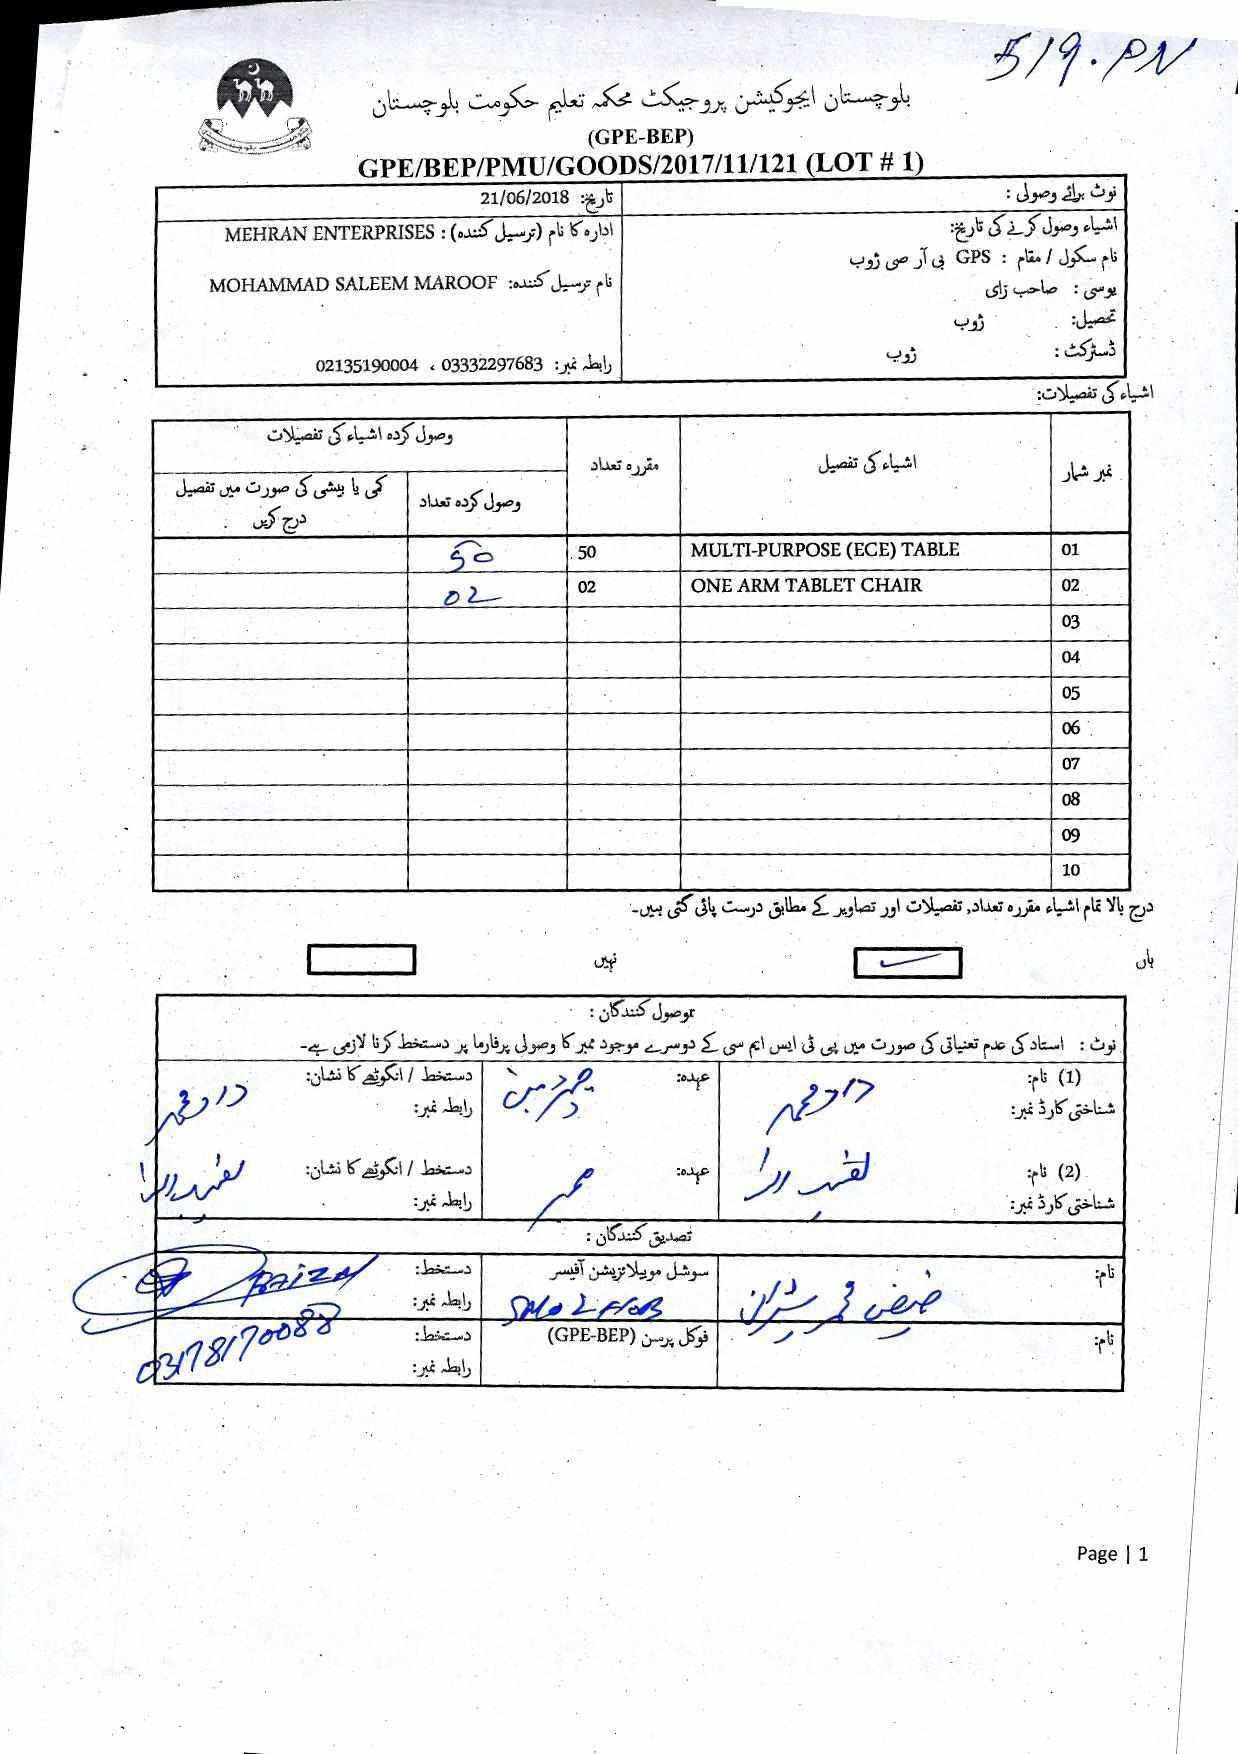 519.PN
بلوچستان ایجوکیشن پروجیکٹ محکمہ تعلیم حکومت بلوچستان
(GPE-BEP)
GPE/BEP/PMU/GOODS/2017/11/121 (LOT # 1)
نوٹ برائے وصولی :
تاریخ: 21/06/2018
اشیاء وصول کرنے کی تاریخ:
نام سکول / مقام : GPS بی آر صی ژوب
یوسی : صاحب زای
تحصیل: ژوب
ڈسٹرکٹ : ژوب
ادارہ کا نام (ترسیل کنندہ) : MEHRAN ENTERPRISES
نام ترسیل کنندہ: MOHAMMAD SALEEM MAROOF
رابطہ نمبر: 03332297683 ، 02135190004
اشیاء کی تفصیلات:
نمبر شمار اشیاء کی تفصیل مقررہ تعداد وصول کردہ اشیاء کی تفصیلات
وصول کردہ تعداد کمی یا بیشی کی صورت میں تفصیل درج کریں
01 MULTI-PURPOSE (ECE) TABLE 50 50
02 ONE ARM TABLET CHAIR 02 02
03
04
05
06
07
08
09
10
درج بالا تمام اشیاء مقررہ تعداد, تفصیلات اور تصاویر کے مطابق درست پائی گئی ہیں۔
ہاں نہیں
وصول کنندگان :
نوٹ : استاد کی عدم تعنیاتی کی صورت میں پی ٹی ایس ایم سی کے دوسرے موجود ممبر کا وصولی پرفارما پر دستخط کرنا لازمی ہے۔
(1) نام: داود محمد عہدہ: چیرمین دستخط / انگوٹھے کا نشان: داود محمد
شناختی کارڈ نمبر: رابطہ نمبر:
(2) نام: عہدہ: ممبر دستخط / انگوٹھے کا نشان:
شناختی کارڈ نمبر: رابطہ نمبر:
تصدیق کنندگان :
نام: سوشل موبیلائزیشن آفیسر دستخط:
SMO ZHOB رابطہ نمبر: 03178170088
نام: فوکل پرسن (GPE-BEP) دستخط:
رابطہ نمبر:
Page | 1